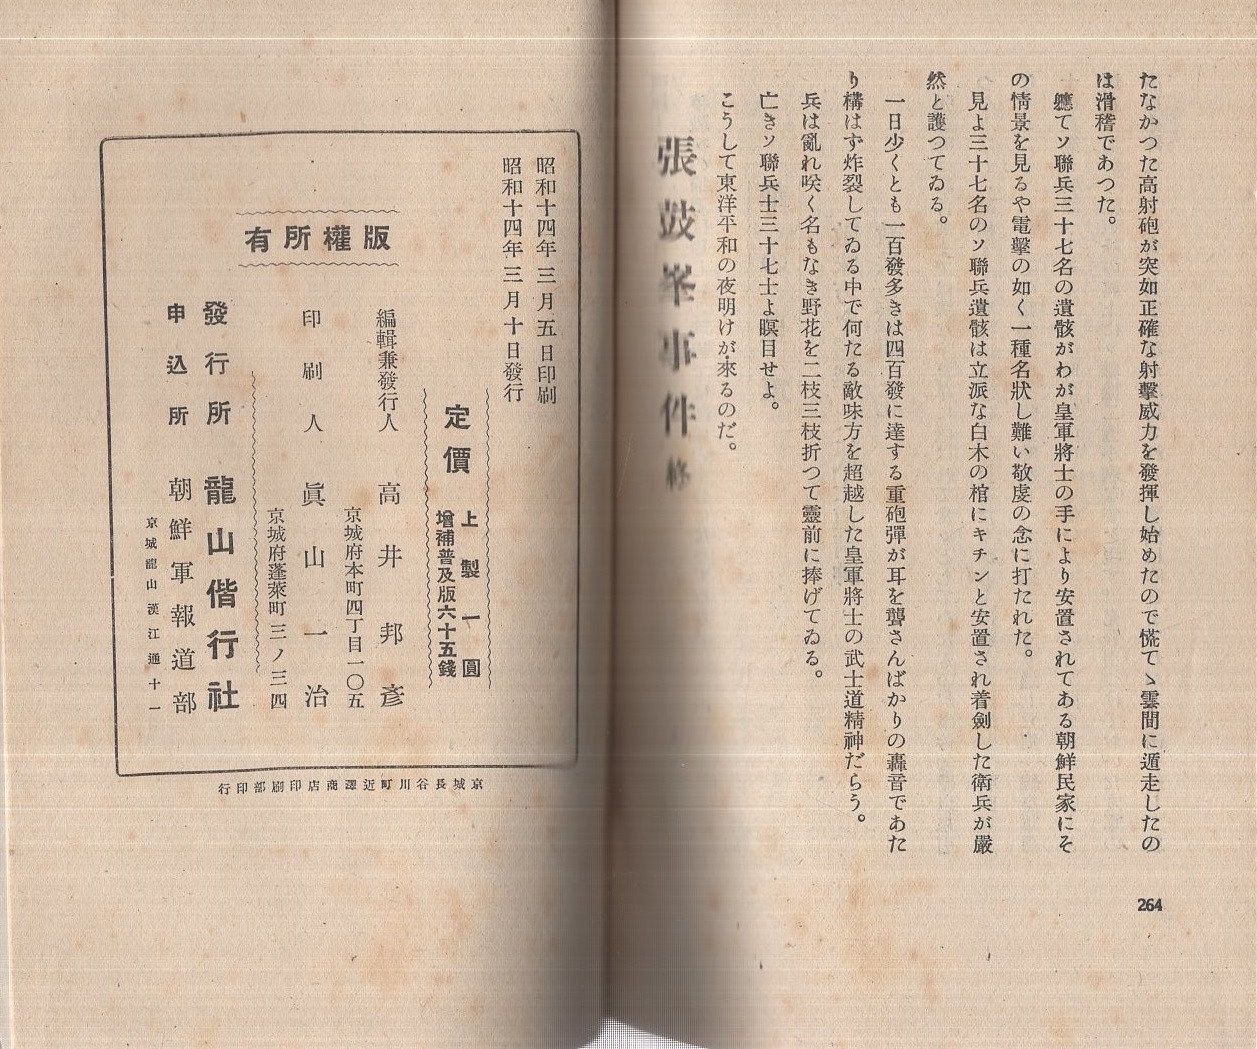 たなかつた高射砲が突如正確な射擊威力を發揮し始めたので慌てゝ雲間に遁走したの
は滑稽であつた。
軈てソ聯兵三十七名の遺骸がわが皇軍將士の手により安置されてある朝鮮民家にそ
の情景を見るや電擊の如く一種名狀し難い敬虔の念に打たれた。
見よ三十七名のソ聯兵遺骸は立派な白木の棺にキチンと安置され着劍した衛兵が嚴
然と護つてゐる。
一日少くとも一百發多きは四百發に達する重砲彈が耳を聾さんばかりの轟音であた
り構はず炸裂してゐる中で何たる敵味方を超越した皇軍將士の武士道精神だらう。
兵は亂れ咲く名もなき野花を二枝三枝折つて靈前に捧げてゐる。
亡きソ聯兵士三十七士よ瞑目せよ。
こうして東洋平和の夜明けが來るのだ。
張鼓峯事件 終
264
昭和十四年三月五日印刷
昭和十四年三月十日發行
定價
上製一圓
增補普及版六十五錢
編輯兼發行人 高井邦彥
京城府本町四丁目一〇五
印刷人 眞山一治
京城府蓬萊町三ノ三四
版權所有
發行所 龍山偕行社
申込所 朝鮮軍報道部
京城龍山漢江通十一
京城長谷川町近澤商店印刷部印行